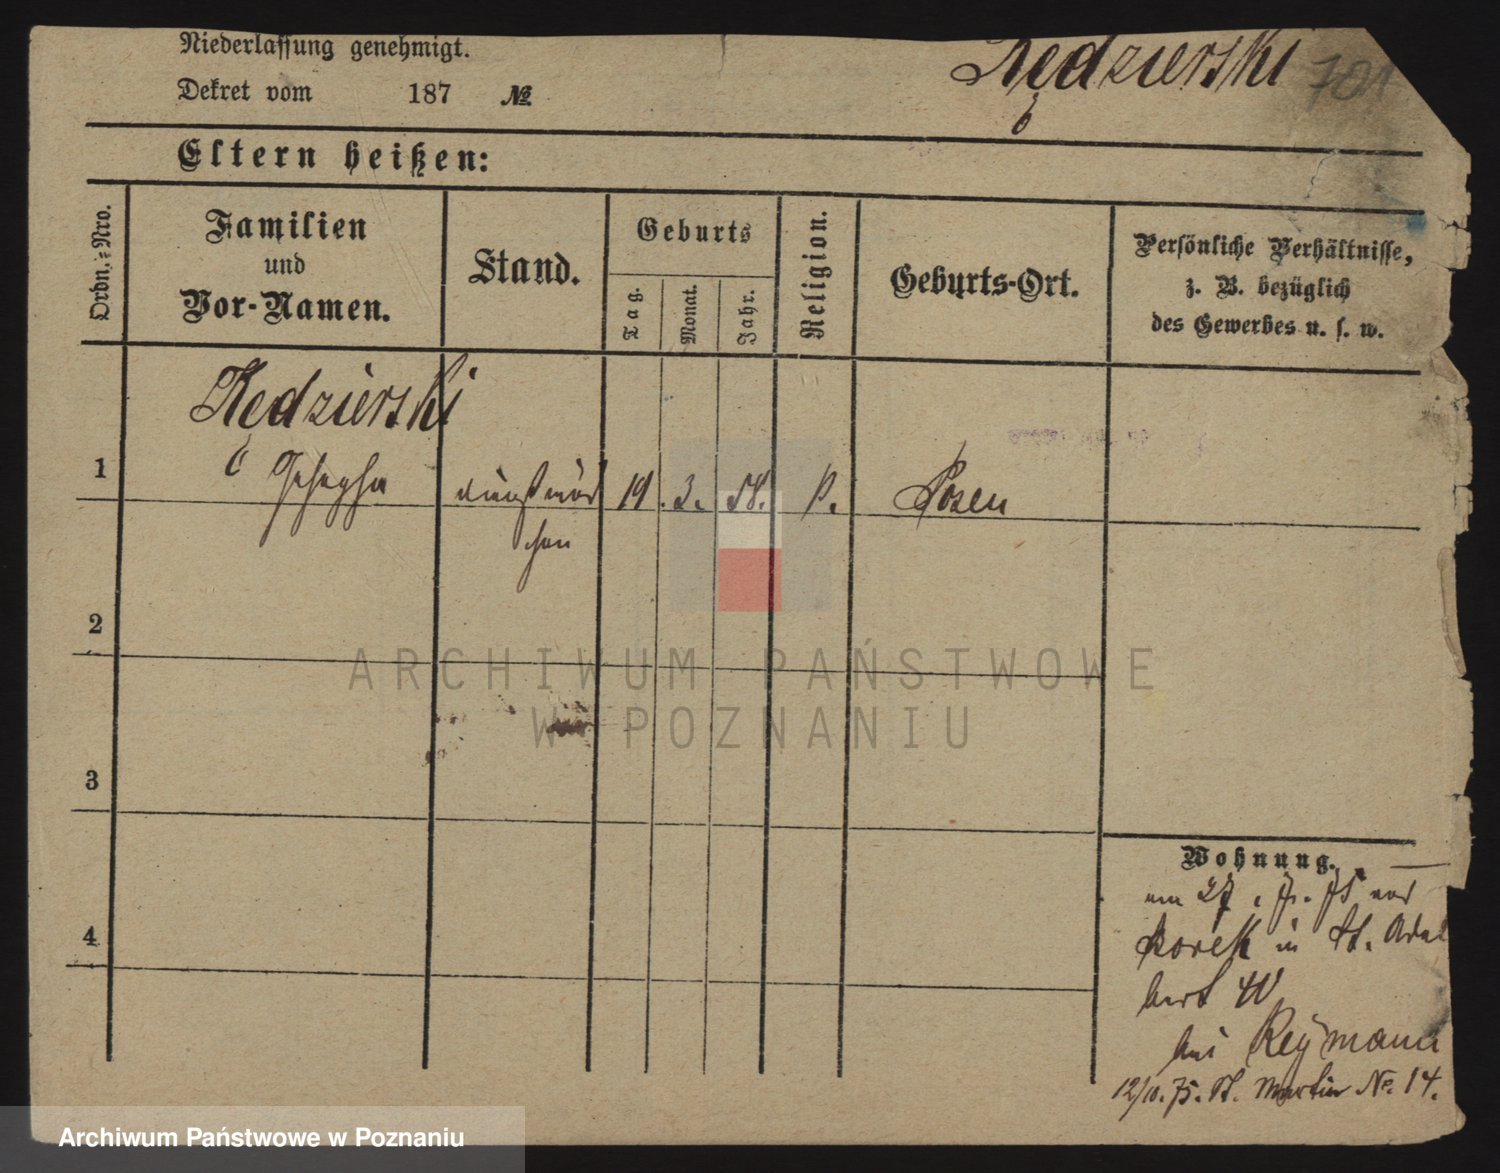 Niederlassung genehmigt.
Dekret vom 187 № Kędzierski 701
Eltern heißen:
Ordn.-Nro.
Familien und Vor-Namen.
Stand.
Geburts
Tag.
Monat.
Jahr.
Religion.
Geburts-Ort.
Persönliche Verhältnisse,
z. B. bezüglich
des Gewerbes u. s. w.
Kędzierski
1 Josepha 19. 3. 58. P. Posen
2
3
4
Wohnung.
am 27. 7. 75
in St. Adal
bert 40
bei Reymann
12/10. 75. St. Martin No. 14.
ARCHIWUM PAŃSTWOWE
W POZNANIU
Archiwum Państwowe w Poznaniu